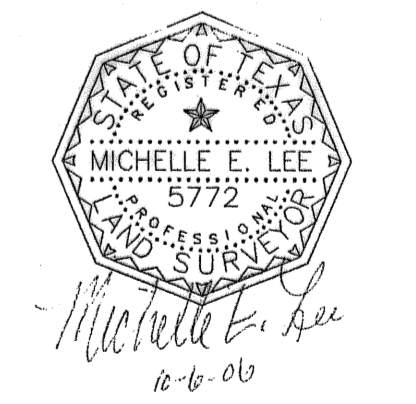 STATE OF TEXAS
REGISTERED
MICHELLE E. LEE
5772
PROFESSIONAL
LAND SURVEYOR
Michelle E. Lee
10-6-06